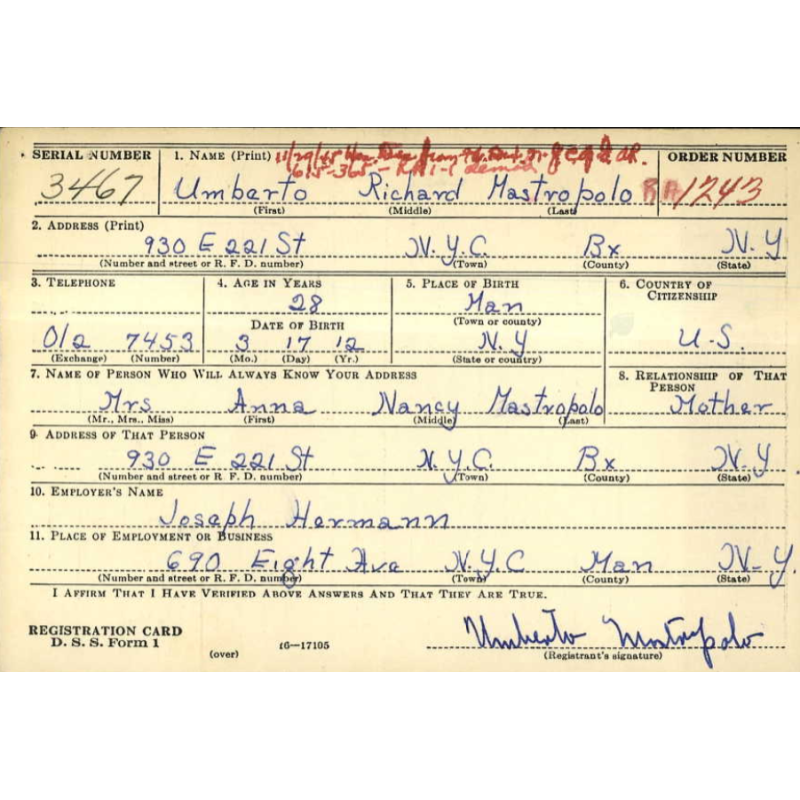 SERIAL NUMBER 1. NAME (Print) ORDER NUMBER
3467 Umberto Richard Mastropolo 1243
(First) (Middle) (Last)
2. ADDRESS (Print)
930 E 221 St N.Y.C. Bx N.Y
(Number and street or R. F. D. number) (Town) (County) (State)
3. TELEPHONE 4. AGE IN YEARS 5. PLACE OF BIRTH 6. COUNTRY OF CITIZENSHIP
28 Man
DATE OF BIRTH (Town or county)
Ola 7453 3 17 12 N.Y U.S.
(Exchange) (Number) (Mo.) (Day) (Yr.) (State or country)
7. NAME OF PERSON WHO WILL ALWAYS KNOW YOUR ADDRESS 8. RELATIONSHIP OF THAT PERSON
Mrs Anna Nancy Mastropolo Mother
(Mr., Mrs., Miss) (First) (Middle) (Last)
9. ADDRESS OF THAT PERSON
930 E 221 St N.Y.C. Bx N.Y
(Number and street or R. F. D. number) (Town) (County) (State)
10. EMPLOYER'S NAME
Joseph Hermann
11. PLACE OF EMPLOYMENT OR BUSINESS
690 Eight Ave N.Y.C Man N-Y.
(Number and street or R. F. D. number) (Town) (County) (State)
I AFFIRM THAT I HAVE VERIFIED ABOVE ANSWERS AND THAT THEY ARE TRUE.
REGISTRATION CARD
D. S. S. Form 1 16—17105 Umberto Mastropolo
(over) (Registrant's signature)